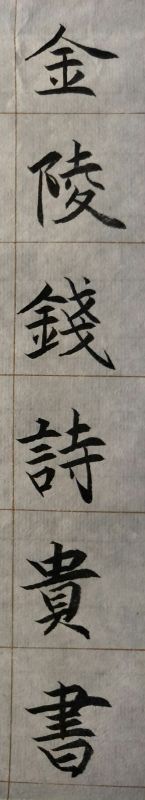 金陵錢詩貴書